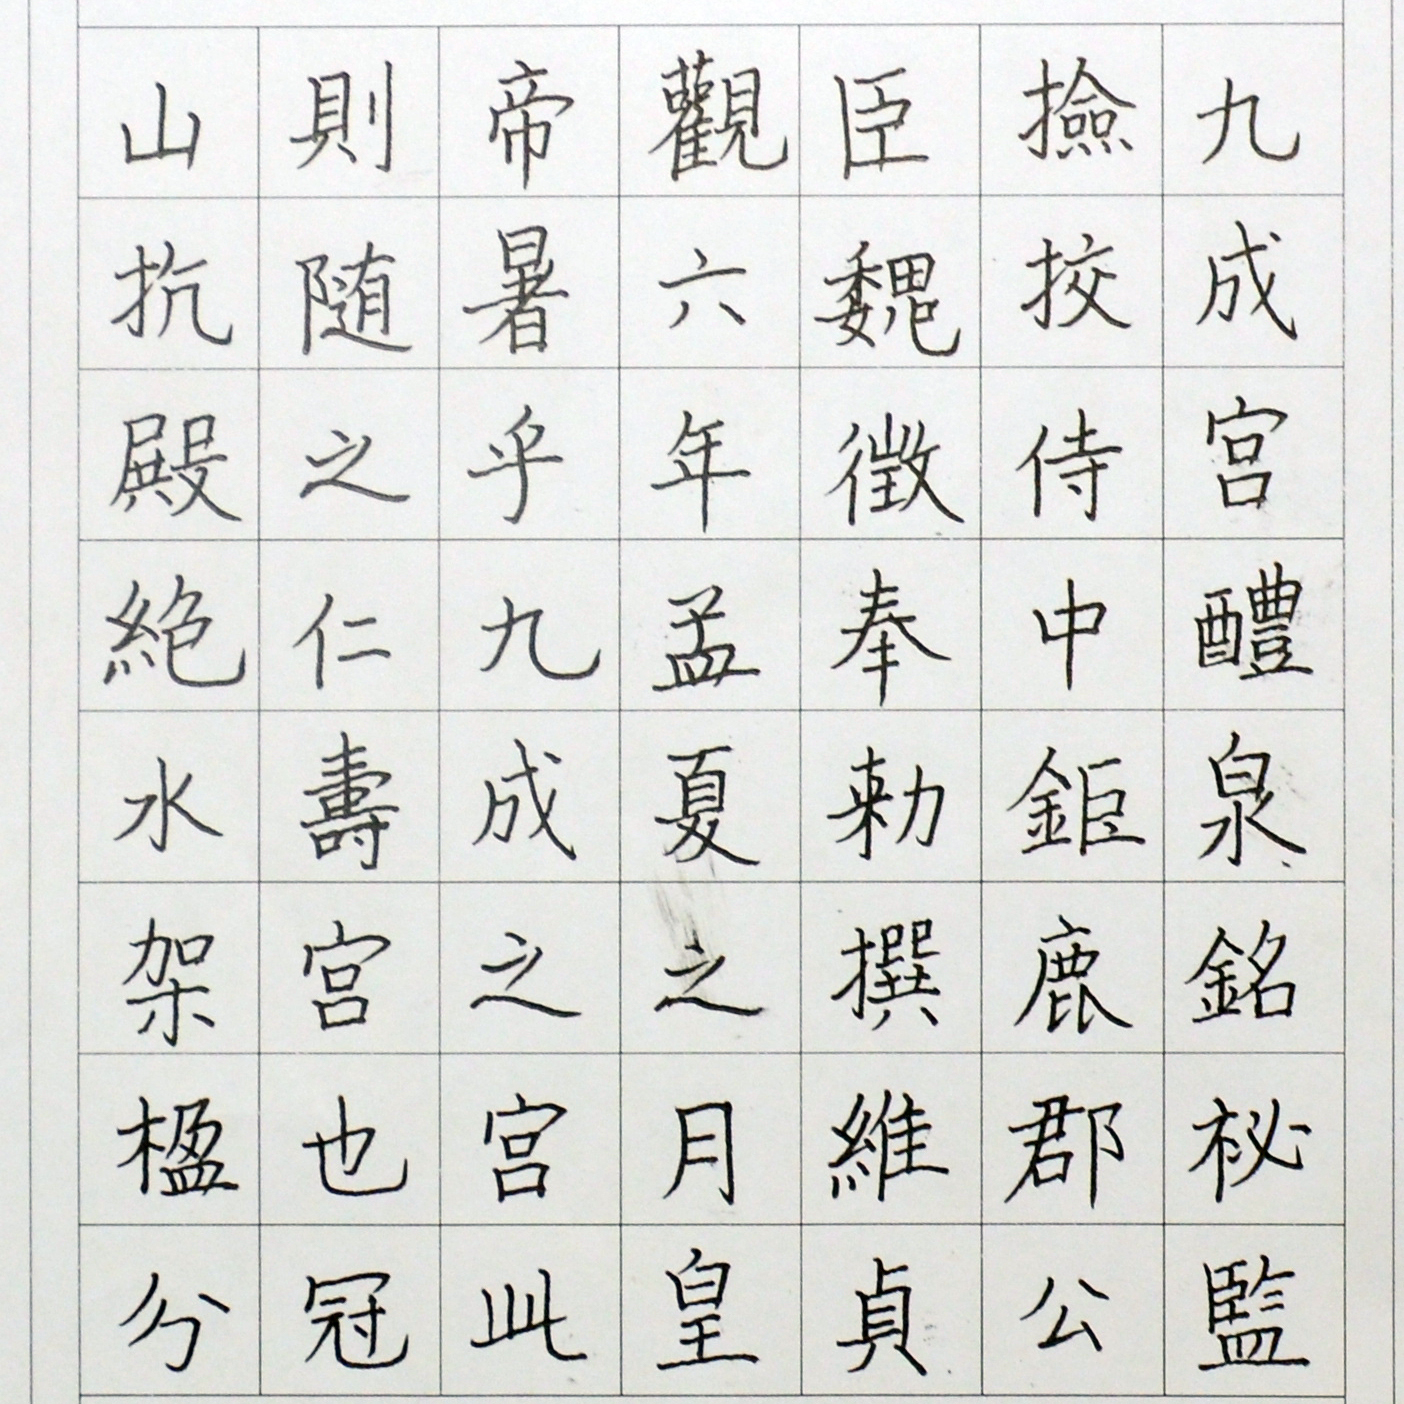 九成宮醴泉銘秘監
撿挍侍中鉅鹿郡公
臣魏徵奉勑撰維貞
觀六年孟夏之月皇
帝暑乎九成之宮此
則随之仁壽宮也冠
山抗殿絕水架楹分